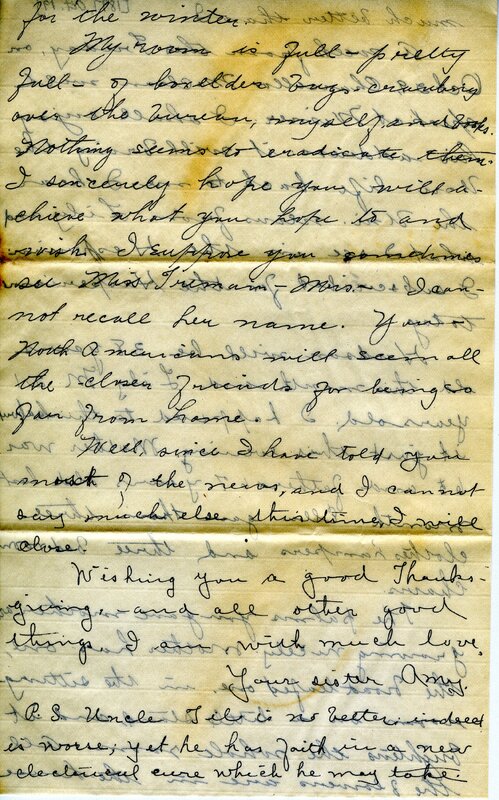 for the winter.
My room is full - pretty
full - of boxelder bugs crawling
over the bureau, myself, and books.
Nothing seems to eradicate them.
I sincerely hope you will a-
chieve what you hope to and
wish. I suppose you sometimes
see Miss Tremann - Mrs - I can-
not recall her name. You
North Americans will seem all
the closer friends for being so
far from home.
Well, since I have told you
most of the news, and I cannot
say much else this time, I will
close.
Wishing you a good Thanks-
giving, - and all other good
things, I am with much love,
Your sister Amy.
P.S. Uncle is no better, indeed
is worse, yet he has faith in a new
electrical cure which he may take.